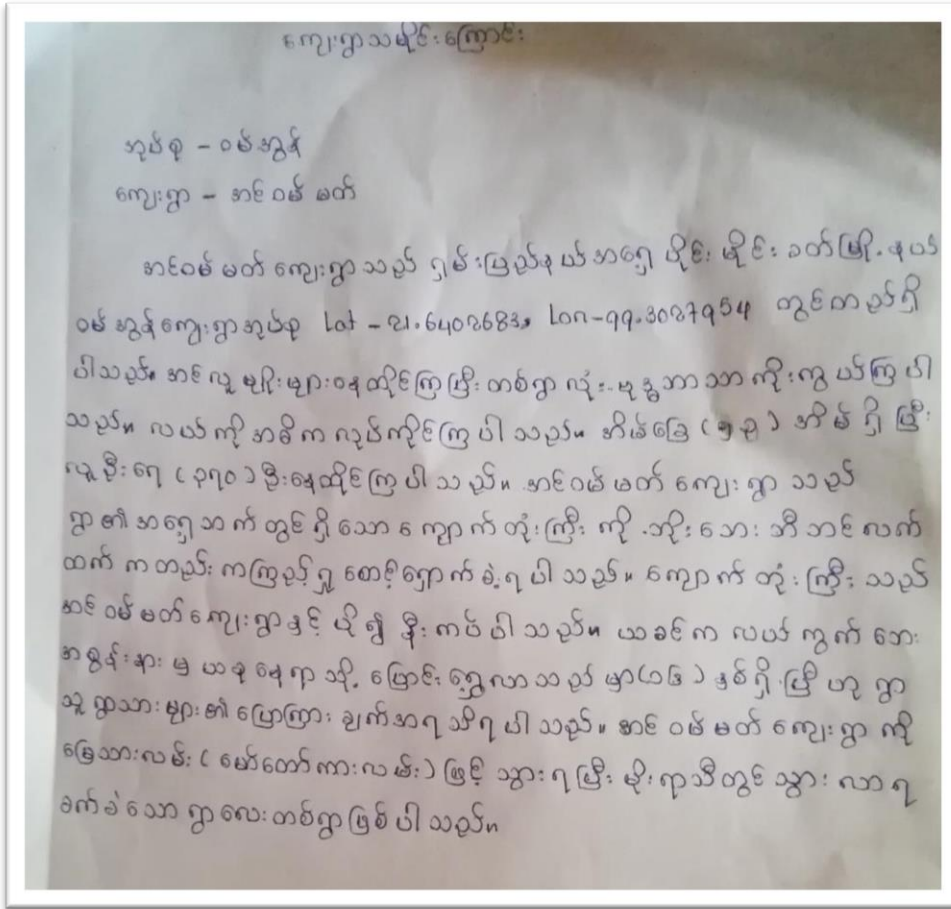 ကျေးရွာသမိုင်းကြောင်း
အုပ်စု - ဝမ်အွန်
ကျေးရွာ - အင်ဝမ်မတ်
အင်ဝမ်မတ်ကျေးရွာသည် ရှမ်းပြည်နယ်အရှေ့ပိုင်း မိုင်းခတ်မြို့နယ်
ဝမ်အွန်ကျေးရွာအုပ်စု Lat - 21.6402683, Lon-99.3027954 တွင်တည်ရှိ
ပါသည်။ အင်လူမျိုးများနေထိုင်ကြပြီး တစ်ရွာလုံး ဗုဒ္ဓဘာသာကိုးကွယ်ကြပါ
သည်။ လယ်ကိုအဓိကလုပ်ကိုင်ကြပါသည်။ အိမ်ခြေ (၅၃) အိမ်ရှိပြီး
လူဦးရေ (၃၇၀) ဦးနေထိုင်ကြပါသည်။ အင်ဝမ်မတ်ကျေးရွာသည်
ရွာ၏အရှေ့ဘက်တွင်ရှိသောကျောက်တုံးကြီးကို ဘိုးဘေးဘီဘင်လက်
ထက်ကတည်းကကြည့်ရှုစောင့်ရှောက်ခဲ့ရပါသည်။ ကျောက်တုံးကြီးသည်
အင်ဝမ်မတ်ကျေးရွာနှင့်ပို၍နီးကပ်ပါသည်။ ယခင်ကလယ်ကွက်ဘေး
အစွန်းနားမှယခုနေရာသို့ ပြောင်းရွှေ့လာသည်မှာ နှစ်ရှိပြီဟုရွာ
သူရွာသားများ၏ပြောကြားချက်အရသိရပါသည်။ အင်ဝမ်မတ်ကျေးရွာကို
မြေသားလမ်း (မော်တော်ကားလမ်း) ဖြင့်သွားရပြီး မိုးရာသီတွင်သွားလာရ
ခက်ခဲသောရွာလေးတစ်ရွာဖြစ်ပါသည်။